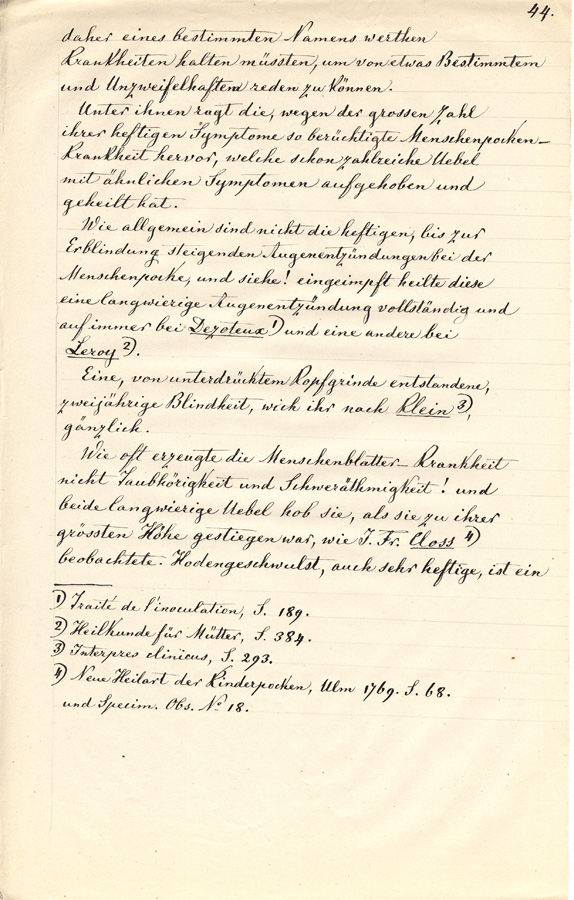 44.
daher eines bestimmten Namens werthen
Krankheiten halten müssten, um von etwas Bestimmtem
und Unzweifelhaftem reden zu können.
Unter ihnen ragt die, wegen der grossen Zahl
ihrer heftigen Symptome so berüchtigte Menschenpocken-
Krankheit hervor, welche schon zahlreiche Uebel
mit ähnlichen Symptomen aufgehoben und
geheilt hat.
Wie allgemein sind nicht die heftigen, bis zur
Erblindung steigenden Augenentzündungen bei der
Menschenpocke, und siehe! eingeimpft heilte diese
eine langwierige Augenentzündung vollständig und
auf immer bei Dezoteux 1) und eine andere bei
Leroy 2).
Eine, von unterdrücktem Kopfgrinde entstandene,
zweijährige Blindheit, wich ihr nach Klein 3),
gänzlich.
Wie oft erzeugte die Menschenblatter-Krankheit
nicht Taubhörigkeit und Schweräthmigkeit! und
beide langwierige Uebel hob sie, als sie zu ihrer
grössten Höhe gestiegen war, wie J. Fr. Closs 4)
beobachtete. Hodengeschwulst, auch sehr heftige, ist ein
1) Traité de l'inoculation, S. 189.
2) Heilkunde für Mütter, S. 384.
3) Interpres clinicus, S. 293.
4) Neue Heilart der Kinderpocken, Ulm 1769. S. 68.
und Specim. Obs. No 18.